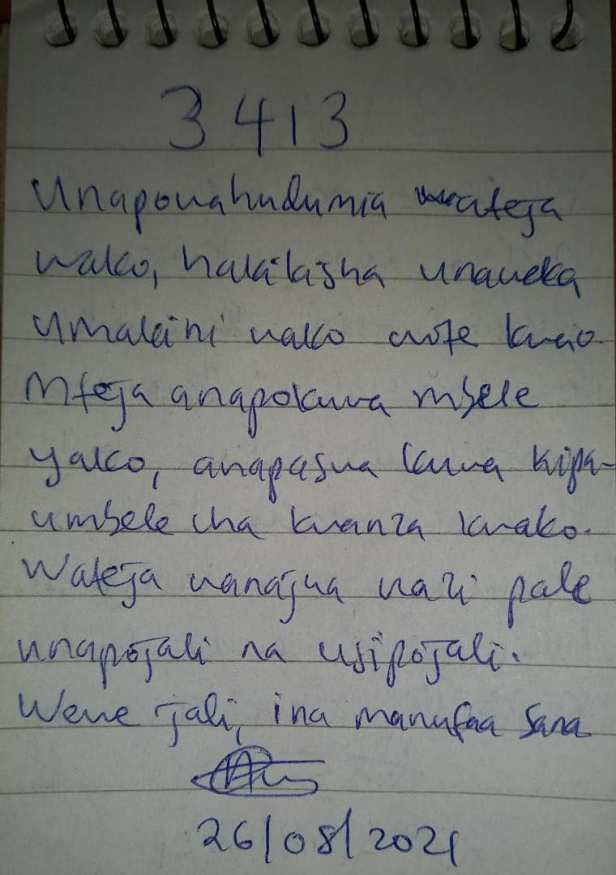 3413
Unapowahudumia wateja
wako, hakikisha unaweka
umakini wako wote kwao.
Mteja anapokuwa mbele
yako, anapaswa kuwa kipa-
umbele cha kwanza kwako.
Wateja wanajua wazi pale
unapojali na usipojali.
Wewe jali, ina manufaa sana
26/08/2021